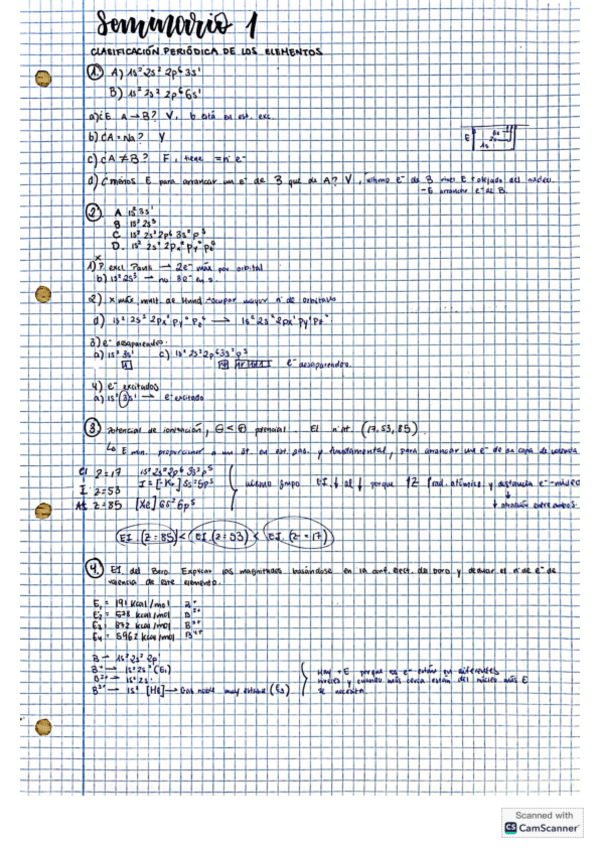 Seminario 1
CLASIFICACIÓN PERIÓDICA DE LOS ELEMENTOS
1. A) 1s² 2s² 2p⁶ 3s¹
B) 1s² 2s² 2p⁶ 6s¹
a) ¿E A → B? V, b está en est. exc.
b) ¿A = Na? V
c) ¿A ≠ B? F, tiene = nº e⁻
d) ¿menos E para arrancar un e⁻ de B que de A? V, último e⁻ de B nivel E + alejado del núcleo
- E arrancar e⁻ de B.
2. A. 1s² 3s¹
B. 1s² 2s³
C. 1s² 2s² 2p⁶ 3s² p⁵
D. 1s² 2s² 2px² py⁰ pz⁰
1) P. excl. Pauli → 2e⁻ máx por orbital
b) 1s² 2s³ → no 3e⁻ en s.
2) x máx. mult. de Hund → ocupar mayor nº de orbitales
d) 1s² 2s² 2px² py⁰ pz⁰ → 1s² 2s² 2px¹ py¹ pz⁰
3) e⁻ desapareados
a) 1s² 3s¹ c) 1s² 2s² 2p⁶ 3s² p⁵
e⁻ desapareados
4) e⁻ excitados
a) 1s² 3s¹ → e⁻ excitado
3. Potencial de ionización, El nº At. (17, 53, 85)
↳ E min. proporcionar a un át. en est. gas. y fundamental, para arrancar un e⁻ de su capa de valencia
Cl Z = 17 1s² 2s² 2p⁶ 3s² p⁵
I Z = 53 I = [Kr] 5s² 5p⁵ mismo grupo EI ↓ al ↓ porque ↑Z ↑rad. atómico y distancia e⁻-núcleo
At Z = 85 [Xe] 6s² 6p⁵ ↓ atracción entre ambos
EI (Z = 85) < EI (Z = 53) < EI (Z = 17)
4. EI del Boro. Explicar las magnitudes basándose en la conf. elect. de boro y deducir el nº de e⁻ de
valencia de este elemento.
E₁ = 191 kcal/mol B⁺
E₂ = 578 kcal/mol B²⁺
E₃ = 872 kcal/mol B³⁺
E₄ = 5962 kcal/mol
B → 1s² 2s² 2p¹
B⁺ → 1s² 2s² (E₁) Hay + E porque los e⁻ están en diferentes
B²⁺ → 1s² 2s¹ niveles y cuanto más cerca están del núcleo más E
B³⁺ → 1s² [He] → Gas noble muy estable (E₃) se necesita.
Scanned with
CS CamScanner